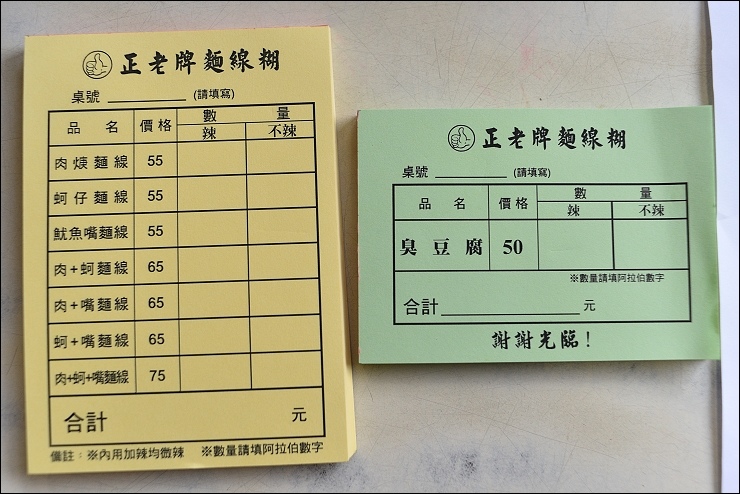 正老牌麵線糊
桌號 (請填寫)
品名 價格 數量
辣 不辣
肉焿麵線 55
蚵仔麵線 55
魷魚嘴麵線 55
肉+蚵麵線 65
肉+嘴麵線 65
蚵+嘴麵線 65
肉+蚵+嘴麵線 75
合計 元
備註：※內用加辣均微辣 ※數量請填阿拉伯數字
正老牌麵線糊
桌號 (請填寫)
品名 價格 數量
辣 不辣
臭豆腐 50
※數量請填阿拉伯數字
合計 元
謝謝光臨!